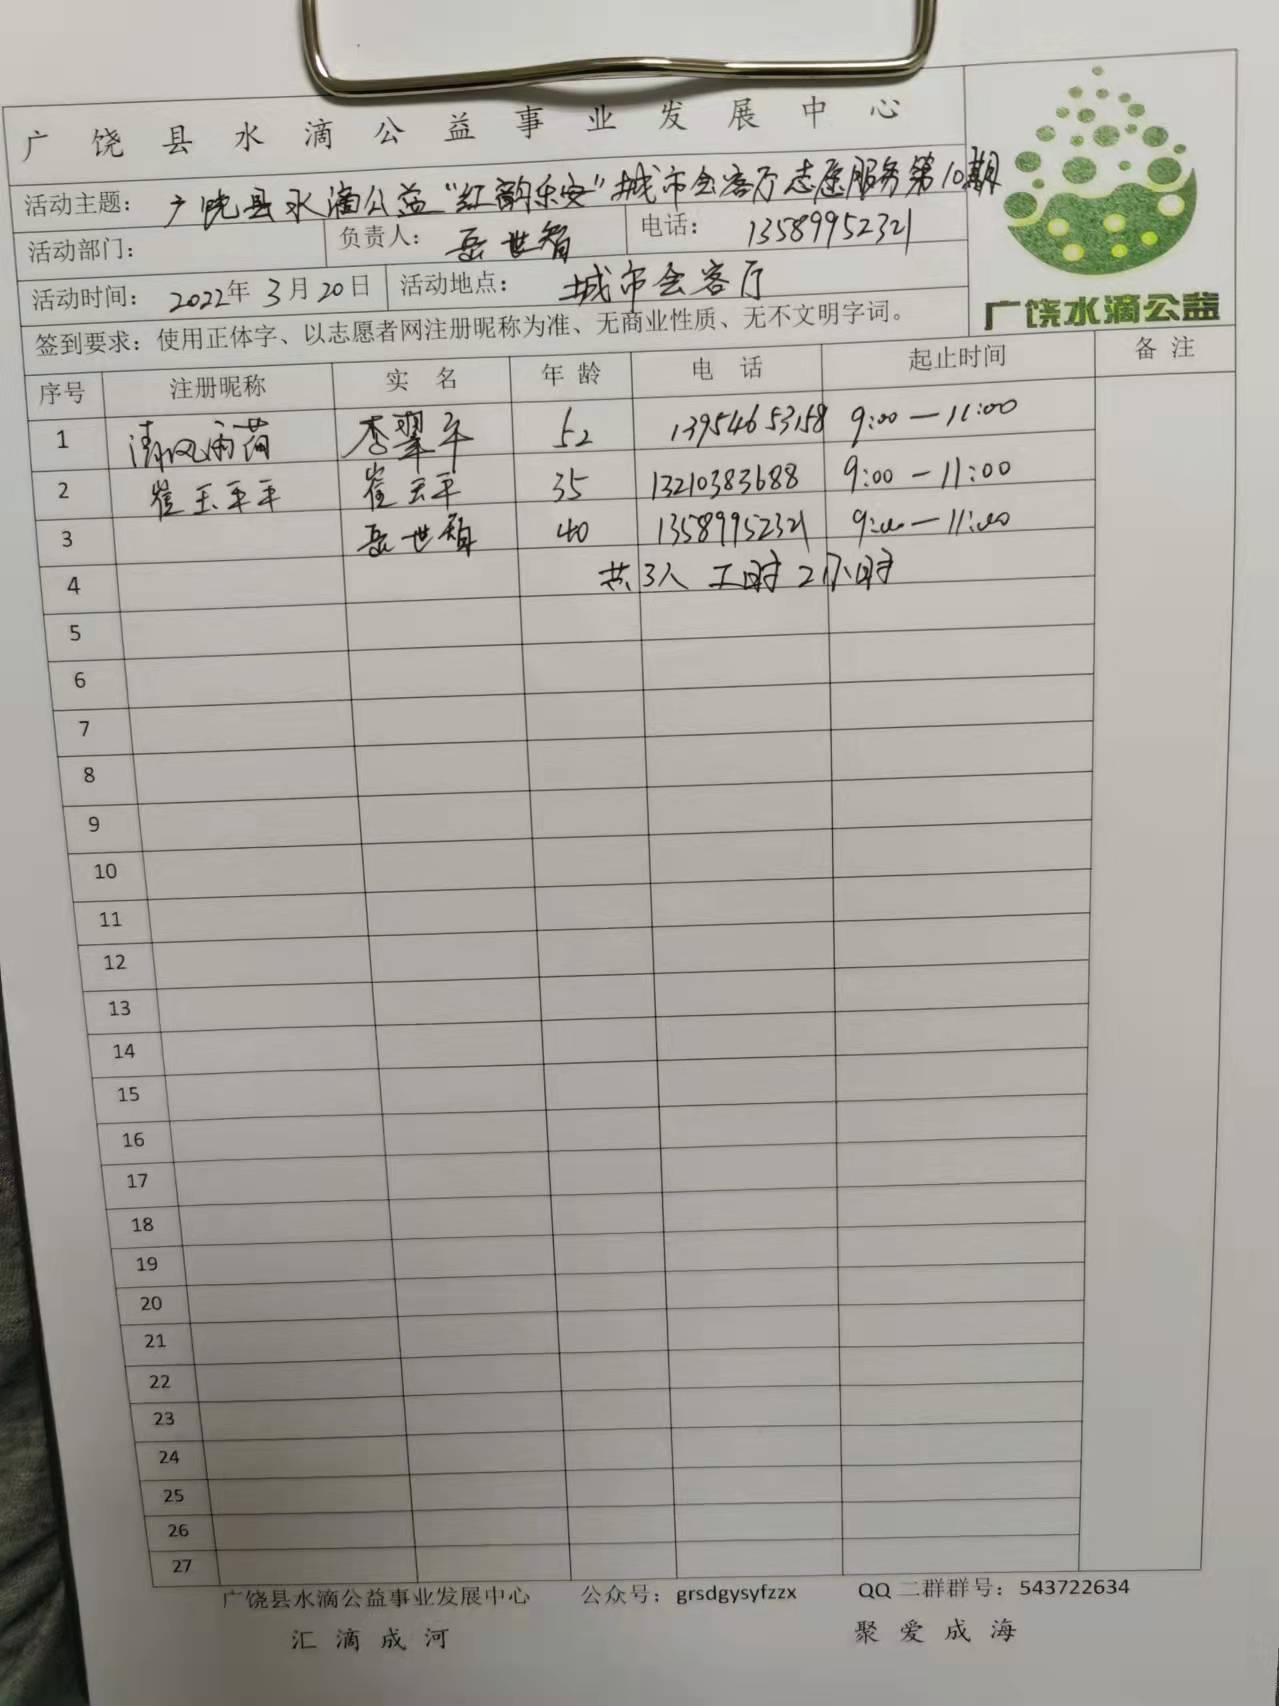 广饶县水滴公益事业发展中心
活动主题：广饶县水滴公益“红韵乐安”城市会客厅志愿服务第10期
活动部门： 负责人：岳世智 电话：13589952321
活动时间：2022年3月20日 活动地点：城市会客厅
广饶水滴公益
签到要求：使用正体字、以志愿者网注册昵称为准、无商业性质、无不文明字词。
序号 注册昵称 实名 年龄 电话 起止时间 备注
1 清风雨荷 李翠平 52 13954653158 9:00—11:00
2 崔玉平平 崔云平 35 13210383688 9:00—11:00
3 岳世智 40 13589952321 9:00—11:00
4 共3人 工时2小时
5
6
7
8
9
10
11
12
13
14
15
16
17
18
19
20
21
22
23
24
25
26
27
广饶县水滴公益事业发展中心 公众号：grsdgysyfzzx QQ二群群号：543722634
汇滴成河 聚爱成海